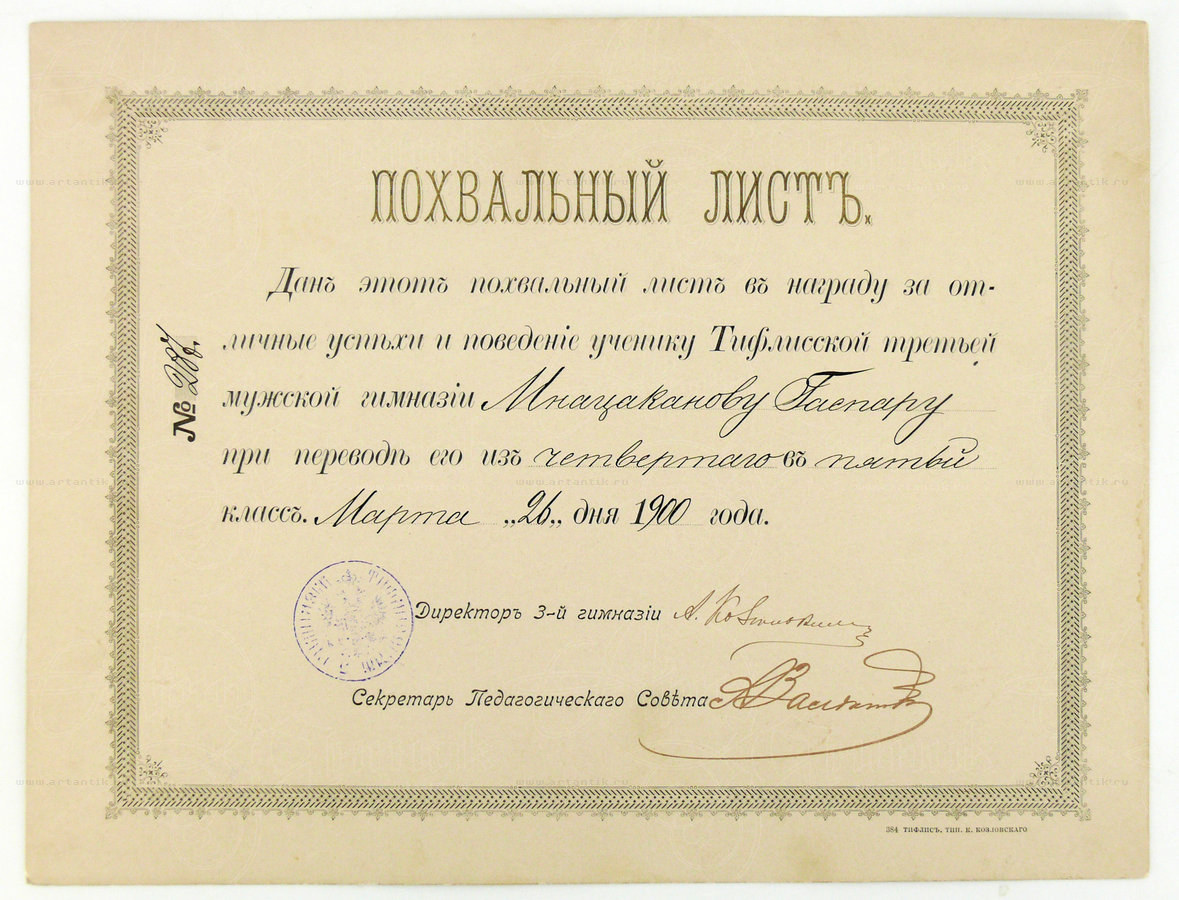 ПОХВАЛЬНЫЙ ЛИСТЪ.
Данъ этотъ похвальный листъ въ награду за от-
личные успѣхи и поведеніе ученику Тифлисской третьей
мужской гимназіи Мнацаканову Гаспару
при переводѣ его изъ четвертаго въ пятый
классъ. Марта „26„ дня 1900 года.
№ 287.
Директоръ 3-й гимназіи А.
Секретарь Педагогическаго Совѣта
384 ТИФЛИСЪ, ТИП. К. КОЗЛОВСКАГО
www.artantik.ru